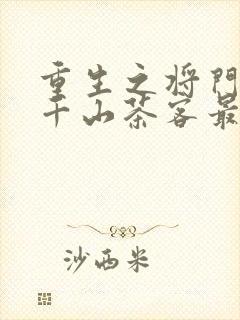 重生之将门
千山茶客最
沙西米